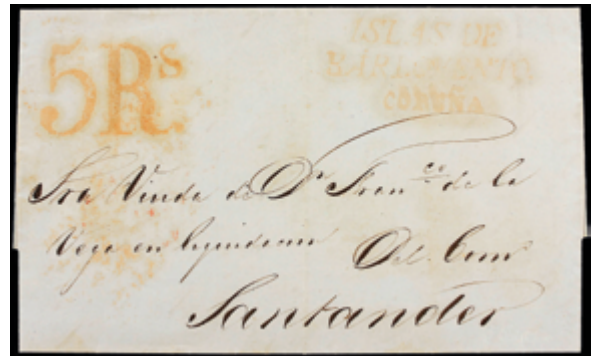 5 Rs
ISLAS DE
BARLOVENTO
CORUÑA
Sra Viuda de Dn Franco de la
Vega en liquidacion Del Com
Santander